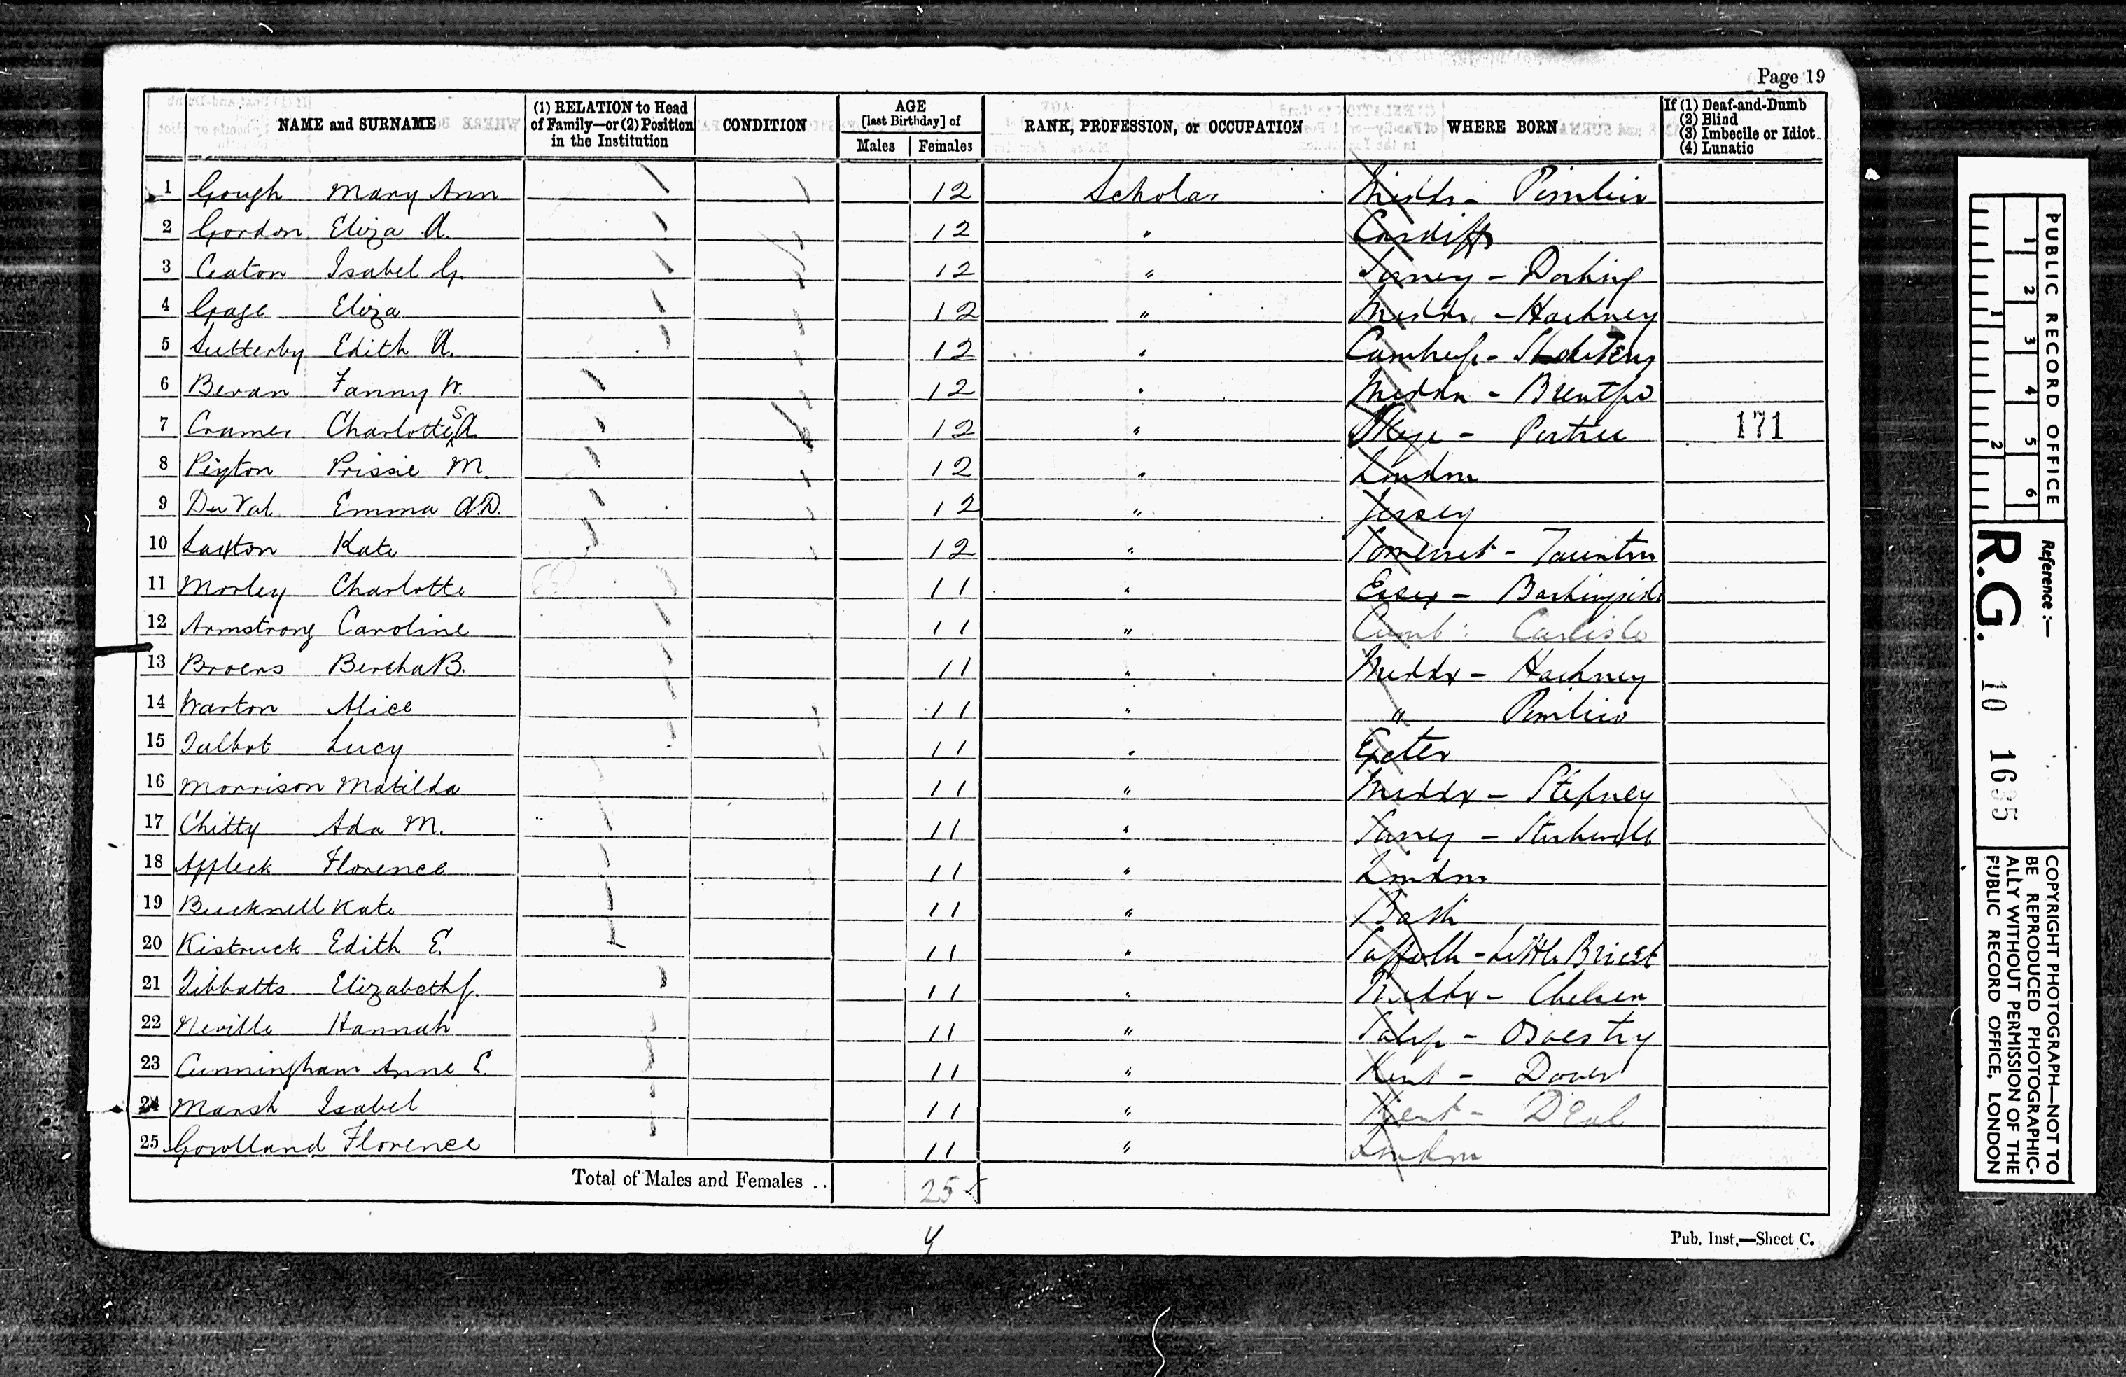 Page 19
NAME and SURNAME
(1) RELATION to Head of Family—or (2) Position in the Institution
CONDITION
AGE [last Birthday] of
Males Females
RANK, PROFESSION, or OCCUPATION
WHERE BORN
If (1) Deaf-and-Dumb
(2) Blind
(3) Imbecile or Idiot
(4) Lunatic
1 Gough Mary Ann 12 Scholar Middx - Pimlico
2 Gordon Eliza A. 12 " Cardiff
3 Ceaton Isabel G. 12 " Surrey - Dorking
4 Gage Eliza 12 " Middx - Hackney
5 Sutterby Edith A. 12 "
6 Bevan Fanny W. 12 " Middx - Brentfo
7 Cramer Charlotte S A. 12 " Skye - Portree 171
8 Peyton Prissie M. 12 " London
9 Du Val Emma A D. 12 " Jersey
10 Laxton Kate 12 " Somerset - Taunton
11 Morley Charlotte 11 " Essex - Barkingside
12 Armstrong Caroline 11 " Cumb: Carlisle
13 Broers Bertha B. 11 " Middx - Hackney
14 Warton Alice 11 " " Pimlico
15 Talbot Lucy 11 " Exeter
16 Morrison Matilda 11 " Middx - Stepney
17 Chitty Ada M. 11 " Surrey - Stockwell
18 Affleck Florence 11 " London
19 Bucknell Kate 11 " Bath
20 Kistruck Edith E. 11 " Suffolk - Little Bricet
21 Tibbatts Elizabeth J. 11 " Middx - Chelsea
22 Neville Hannah 11 " Salop - Oswestry
23 Cunningham Anne E 11 " Kent - Dover
24 Marsh Isabel 11 " Kent - Deal
25 Gowlland Florence 11 " London
Total of Males and Females .. 25
4
Pub. Inst.—Sheet C.
PUBLIC RECORD OFFICE
1 2 3 4 5 6
1 2
Reference :—
R.G. 10 1635
COPYRIGHT PHOTOGRAPH—NOT TO BE REPRODUCED PHOTOGRAPHICALLY WITHOUT PERMISSION OF THE PUBLIC RECORD OFFICE, LONDON